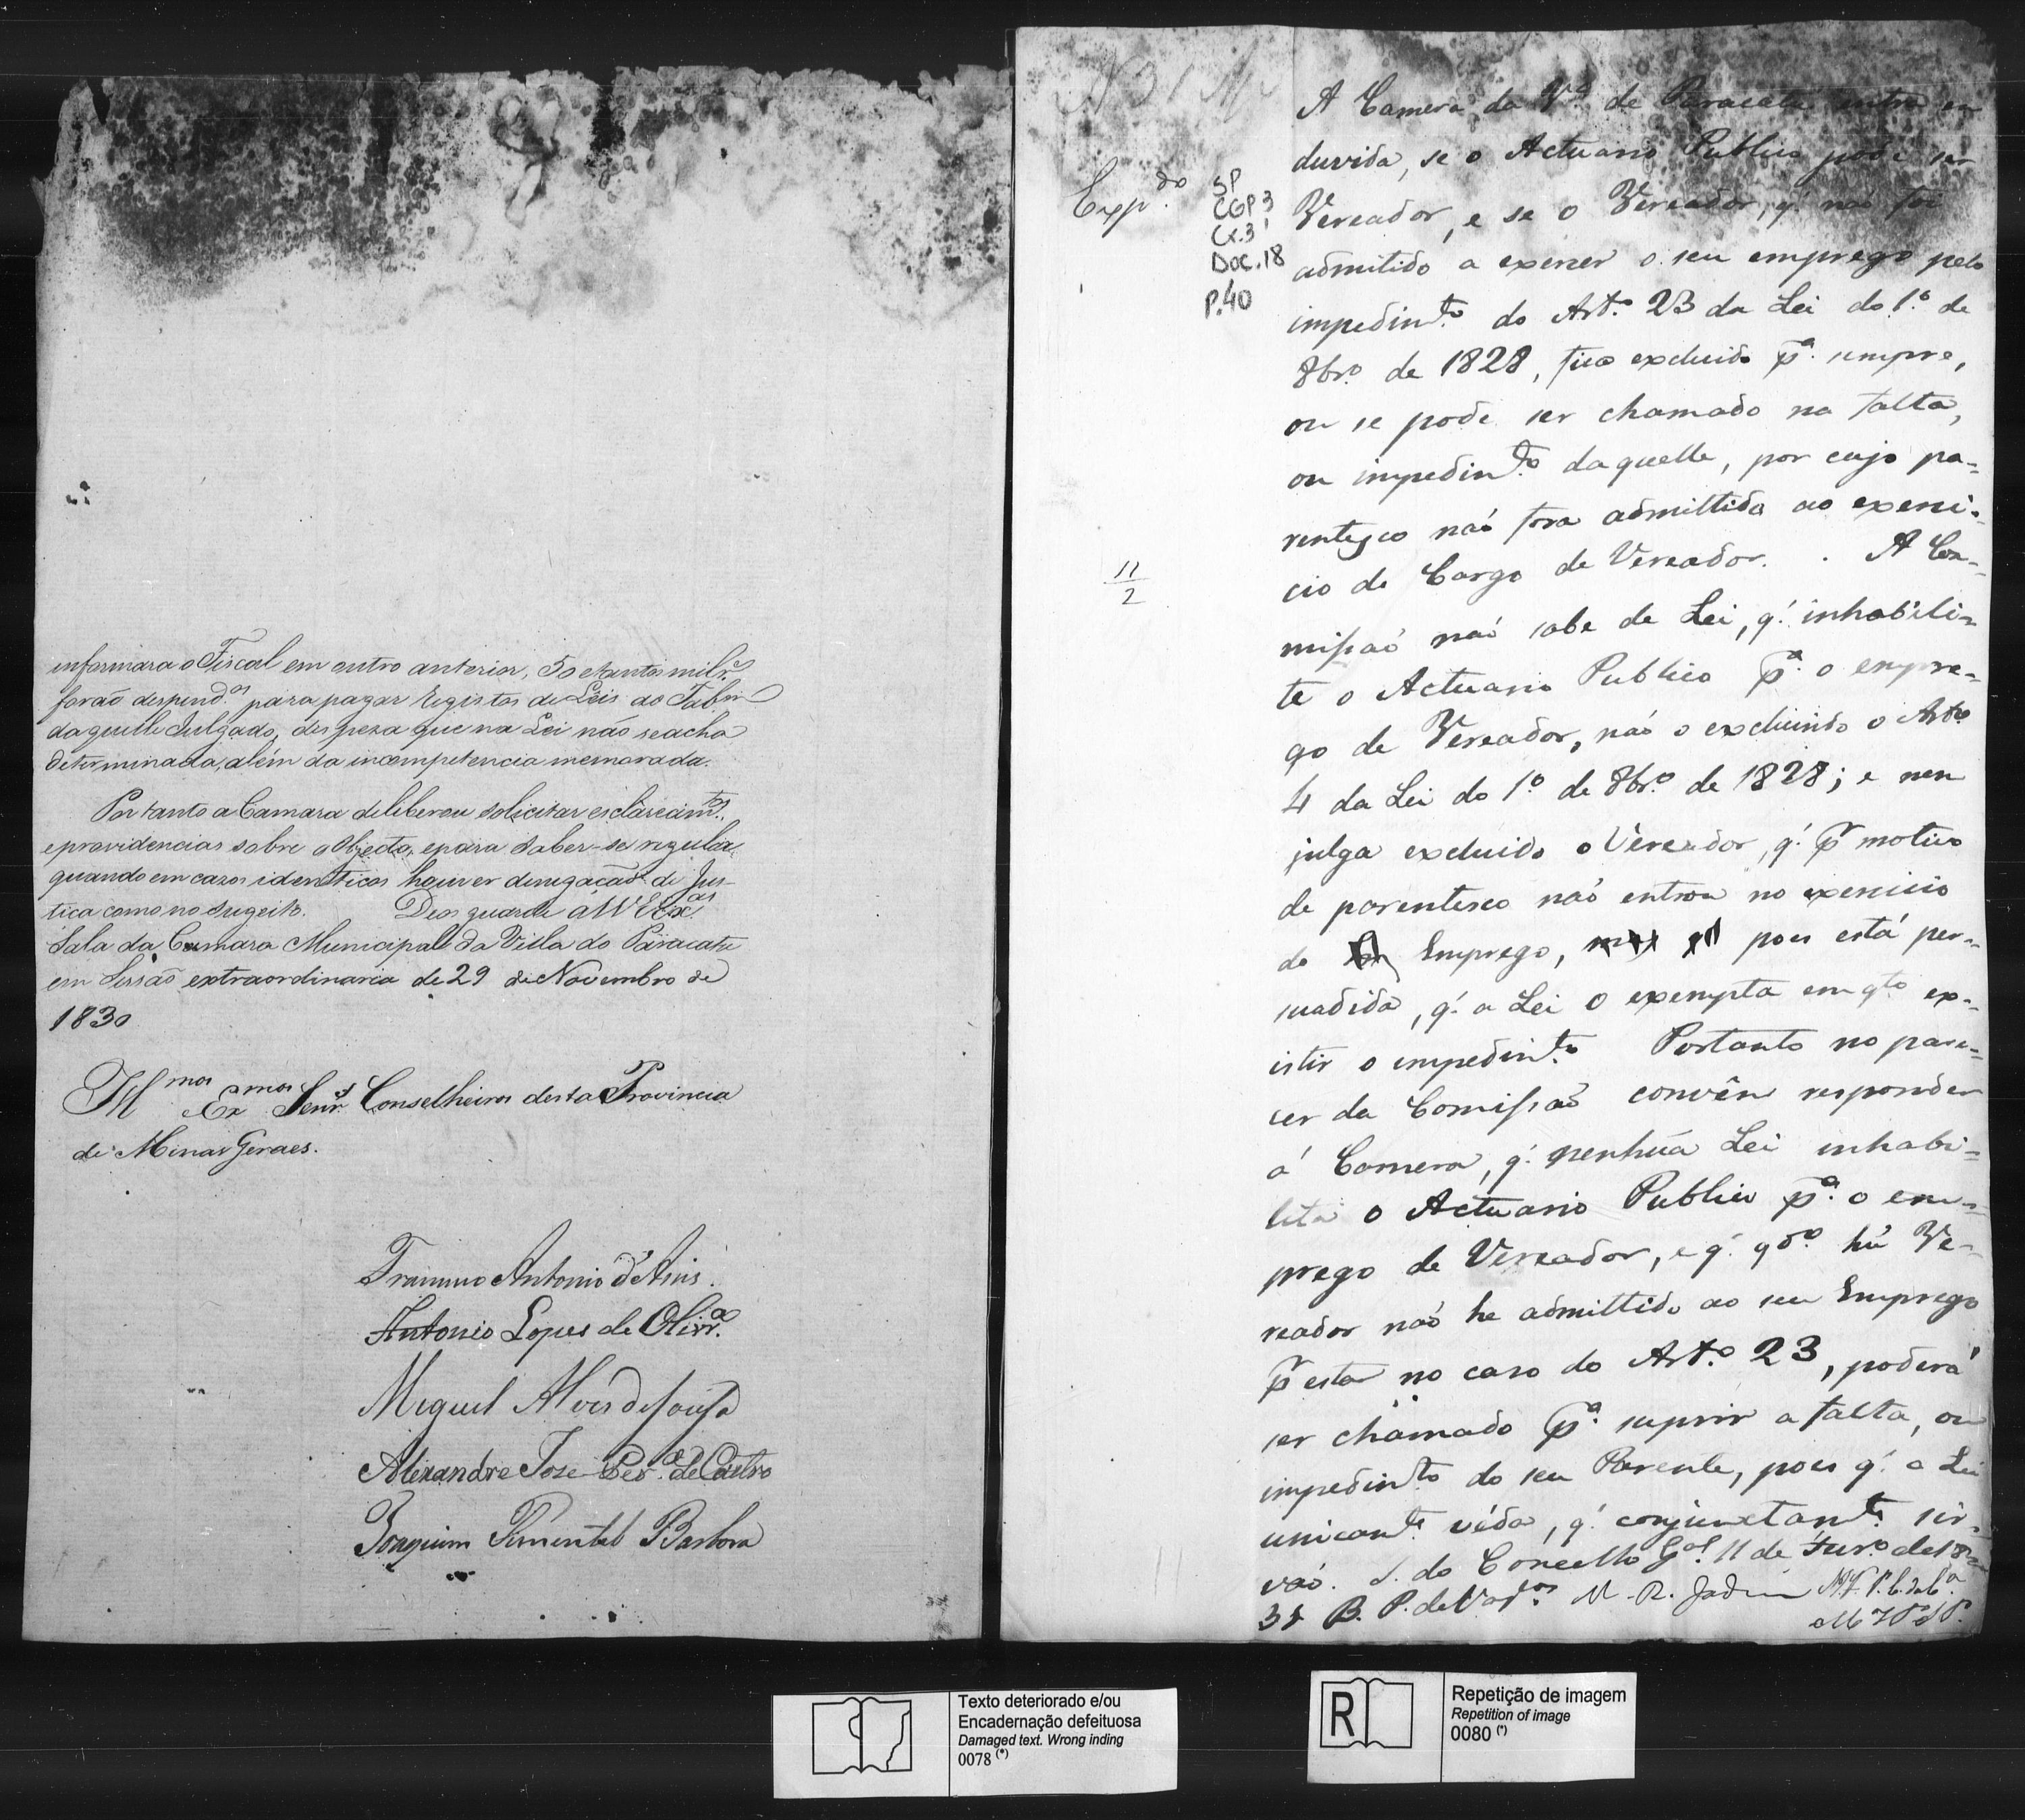 informara o Fiscal em outro anterior, 50 e tantos mil r.s
forão despend.os para pagar Registos de Leis ao Tab.am
daquelle Julgado, despeza que na Lei não se acha
determinada, além da incompetencia memorada.
Por tanto a Camara deliberou solicitar esclareciam.tos,
e providencias sobre o Objecto, e para saber-se regular
quando em cazos identicos houver denegação de Jus-
tica como no sugeito. Deos guarde á VV Ex.as
Sala da Camara Municipal da Villa do Paracatu
em Sessão extraordinaria de 29 de Novembro de
1830
Ill.mos e Ex.mos Senr.s Conselheiros desta Provincia
de Minas Geraes.
Antonio d'Assis.
Antonio Lopes de Olivr.a
Miguel Alves de Souza
Alexandre Jose Per.a de Castro
Joaquim Pimentel Barbosa
N 31
Exp.do
SP
CGP3
Cx.3
Doc.18
P.40
11
2
A Camera da V.a de Paracatu entra em
duvida, se o Actuario Publico pode ser
Vereador, e se o Vereador, q' não foi
admitido a exercer o seu emprego pelo
impedim.to do Art.o 23 da Lei do 1.o de
8br.o de 1828, fica excluido p.a sempre,
ou se pode ser chamado na falta,
ou impedim.to daquelle, por cujo pa-
rentesco não fora admittido ao exerci-
cio de Cargo de Vereador. A Co-
missaõ não sabe de Lei, q' inhabili-
te o Actuario Publico p.a o empre-
go de Vereador, não o excluindo o Art.o
4 da Lei do 1.o de 8br.o de 1828; e nem
julga excluido o Vereador, q' p.r motivo
de parentesco não entrou no exercicio
do Emprego, pois está per-
suadida, q' a Lei o exempta emq.to ex-
istir o impedim.to Portanto no pare-
cer da Comissaõ convêm responder
á Camera, q' nenhũa Lei inhabi-
lita o Actuario Publico p.a o em-
prego de Vereador, e q' qdo. hũ Ve-
reador não he admittido ao seu Emprego
p.r estar no caso do Art.o 23, poderá
ser chamado p.a suprir a falta, ou
impedim.to do seu Parente, pois q' a Lei
unicam.te véda, q' conjunctam.te sir-
vaõ. S. do Concelho G.al 11 de Fevr.o de 18
31 B. P. de Vas.os M. R. Jardim
Texto deteriorado e/ou
Encadernação defeituosa
Damaged text. Wrong inding
0078 (*)
R
Repetição de imagem
Repetition of image
0080 (*)